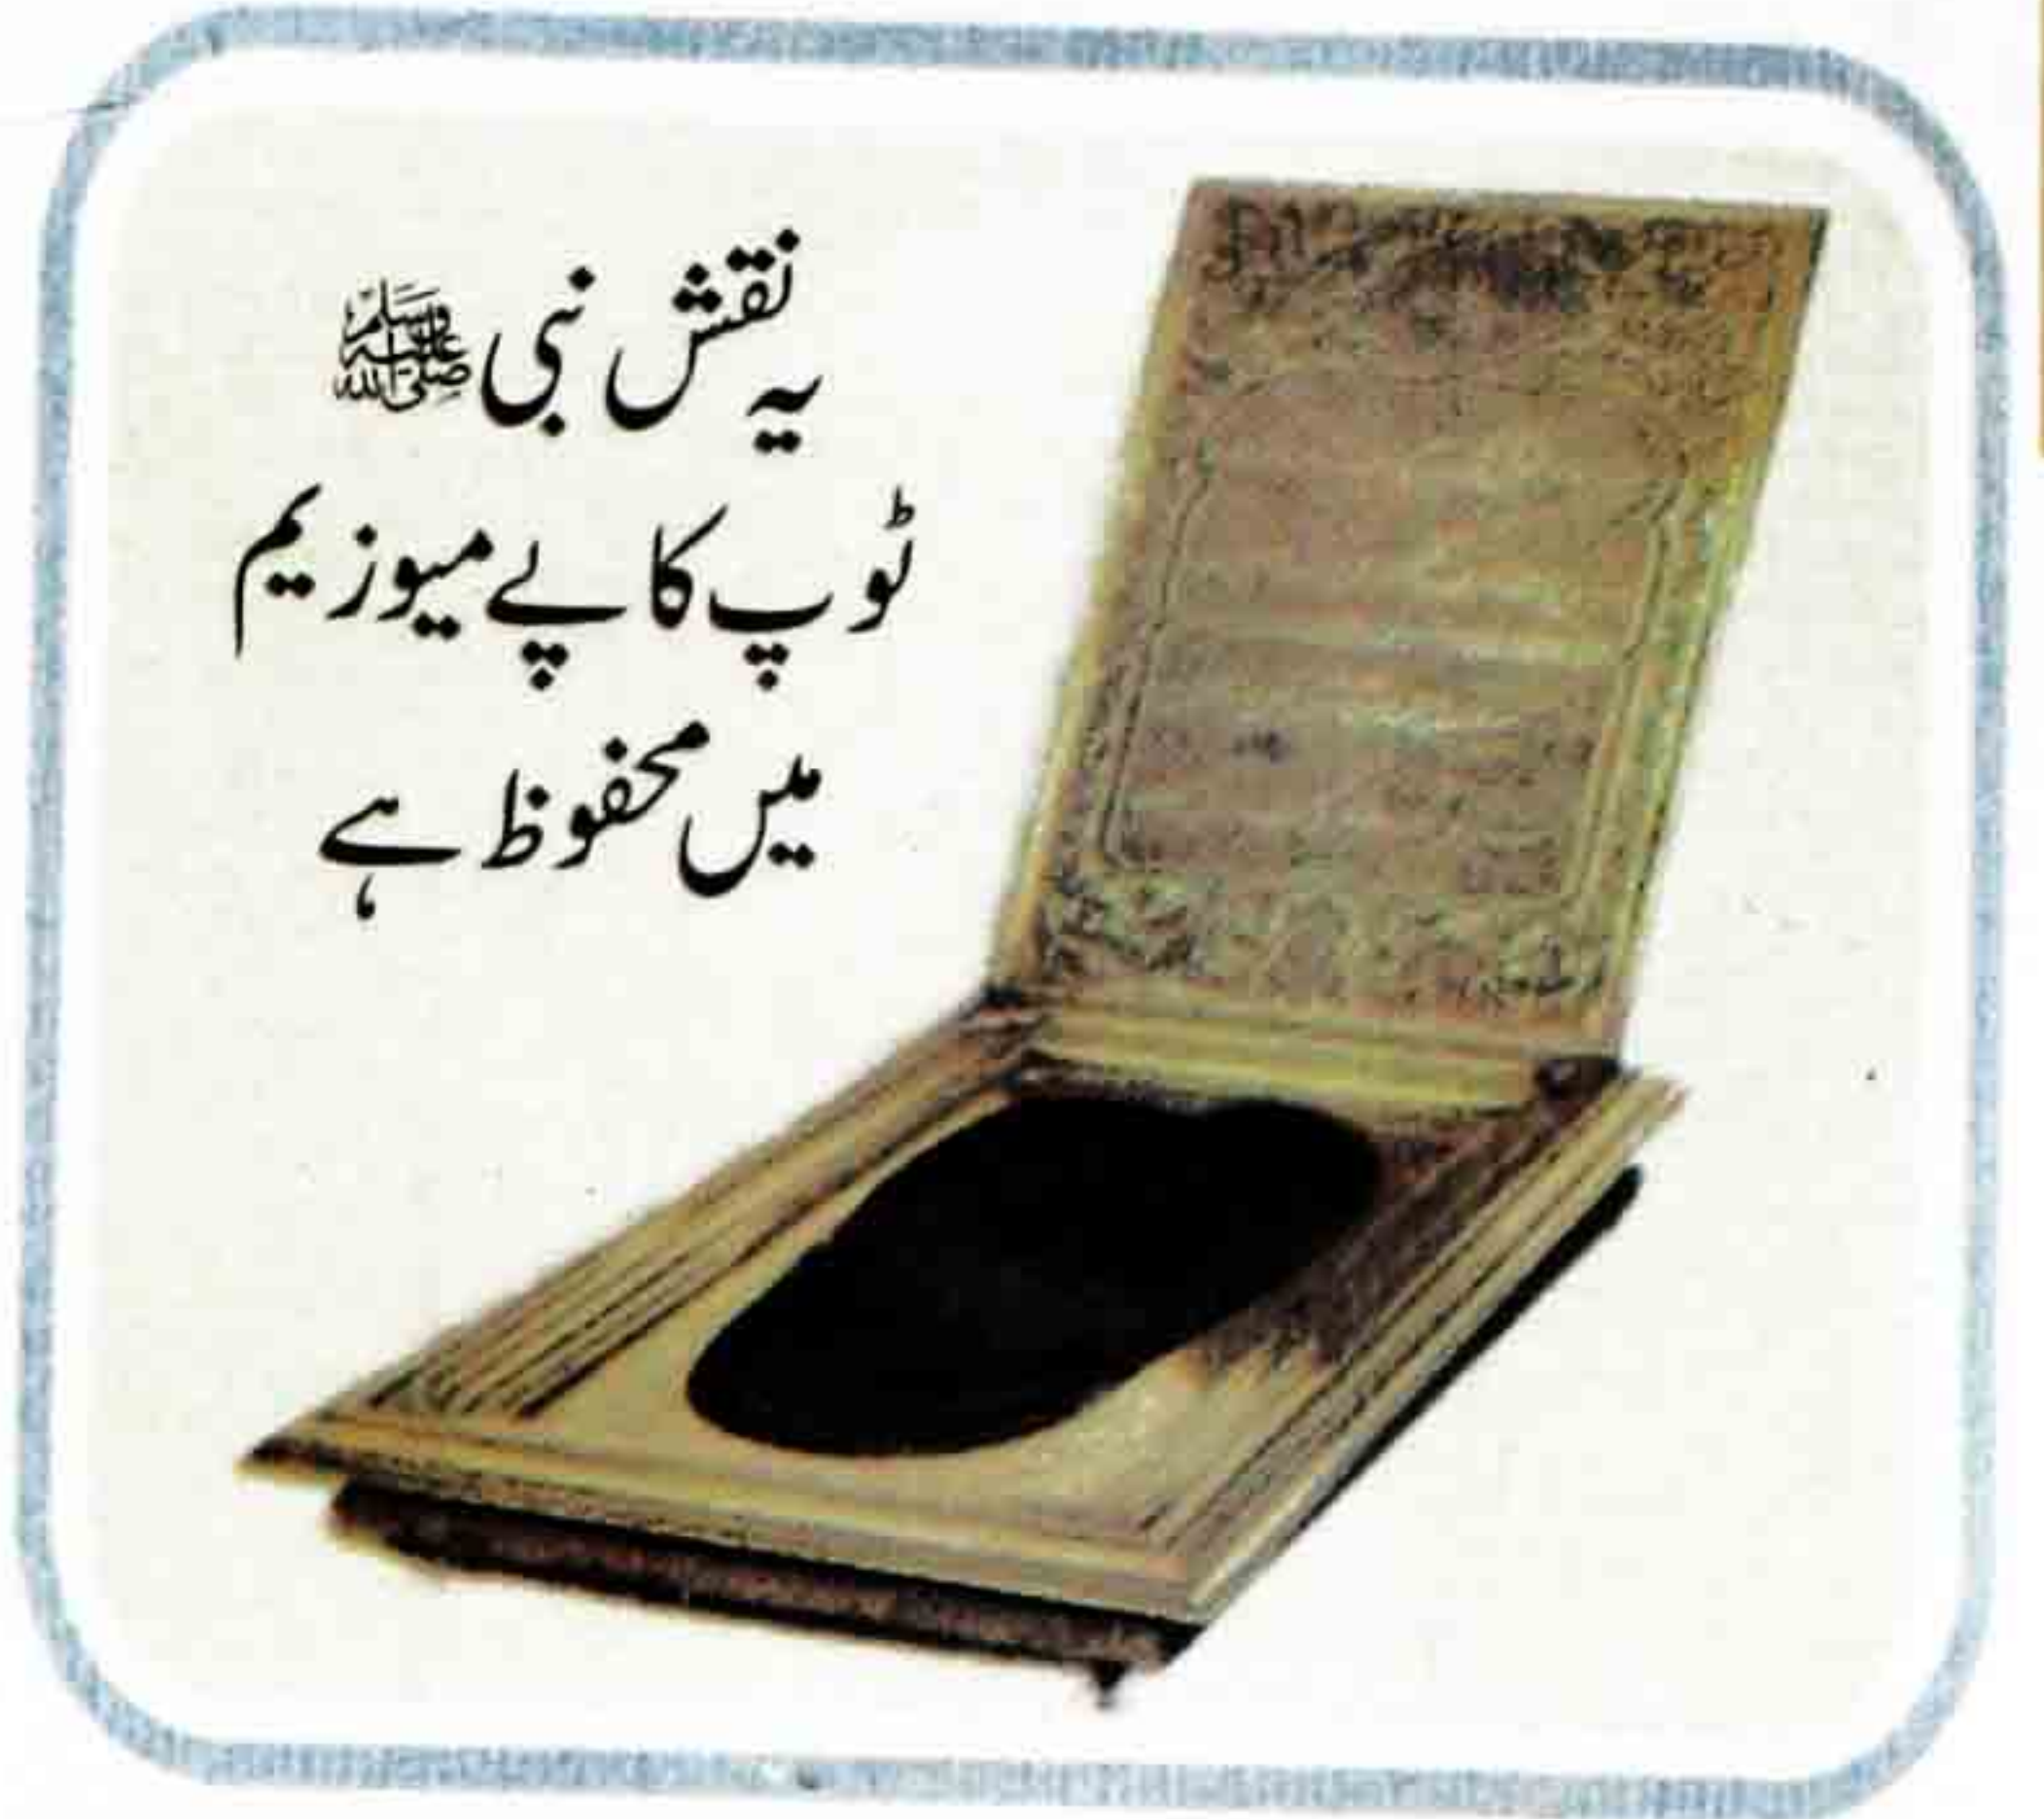 یہ نقش نبی ﷺ
ٹوپ کاپے میوزیم
میں محفوظ ہے